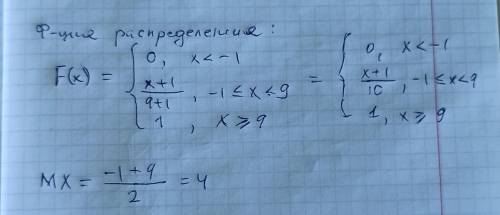 Ф-ция распределения:
F(x) = { 0, x < -1 = { 0, x < -1
x+1 / 9+1, -1 ≤ x < 9 x+1 / 10, -1 ≤ x < 9
1, x ⩾ 9 1, x ⩾ 9
MX = -1+9 / 2 = 4